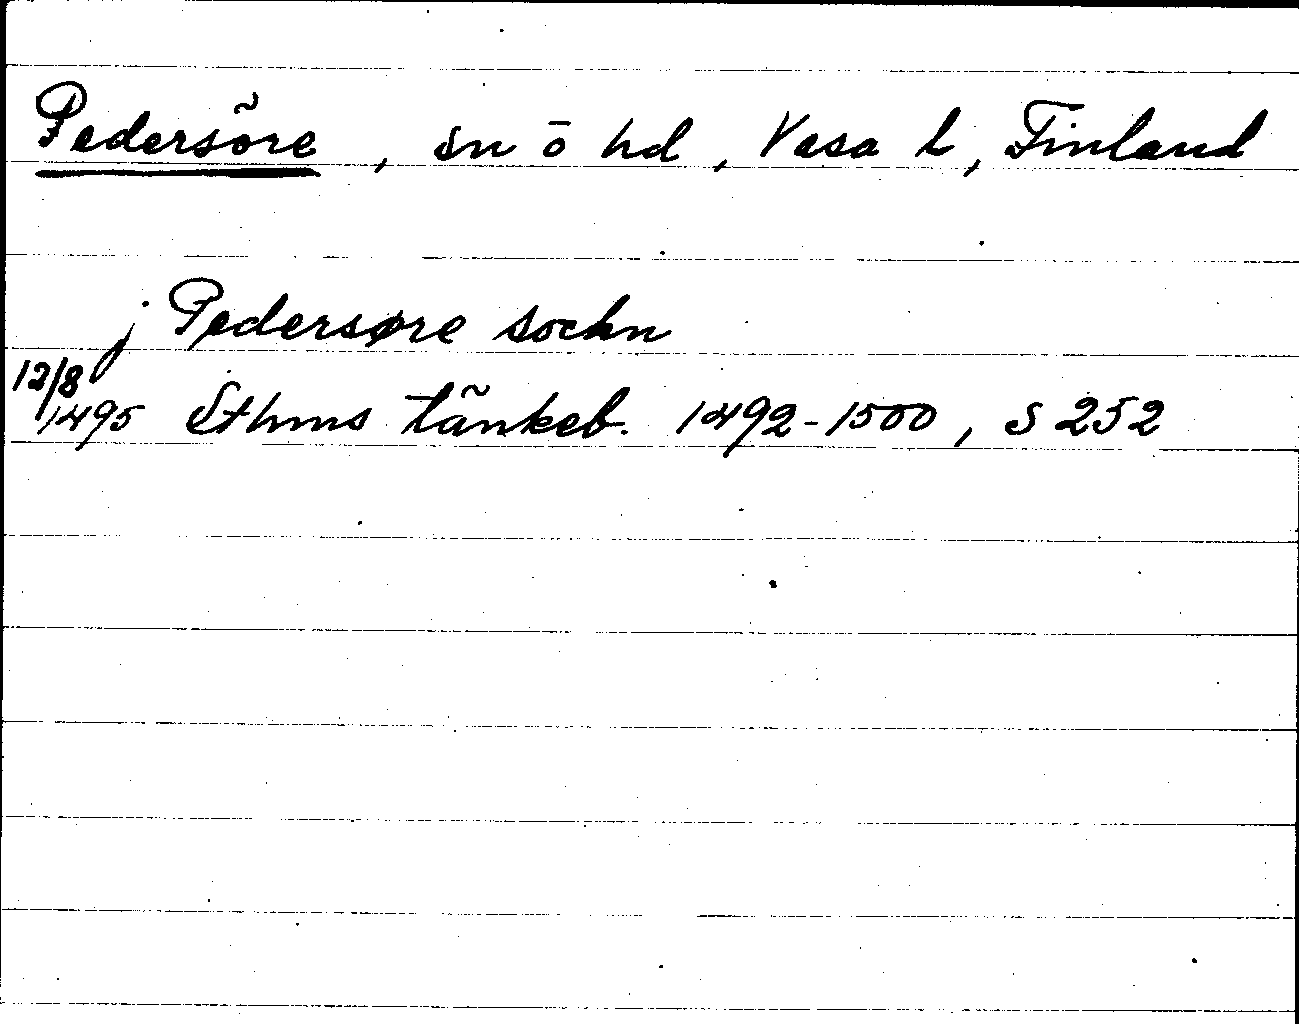 Pedersöre, sn ō hd, Vasa l, Finland
j Pedersøre sockn
12/8
1495 Sthms tänkeb. 1492-1500, S 252